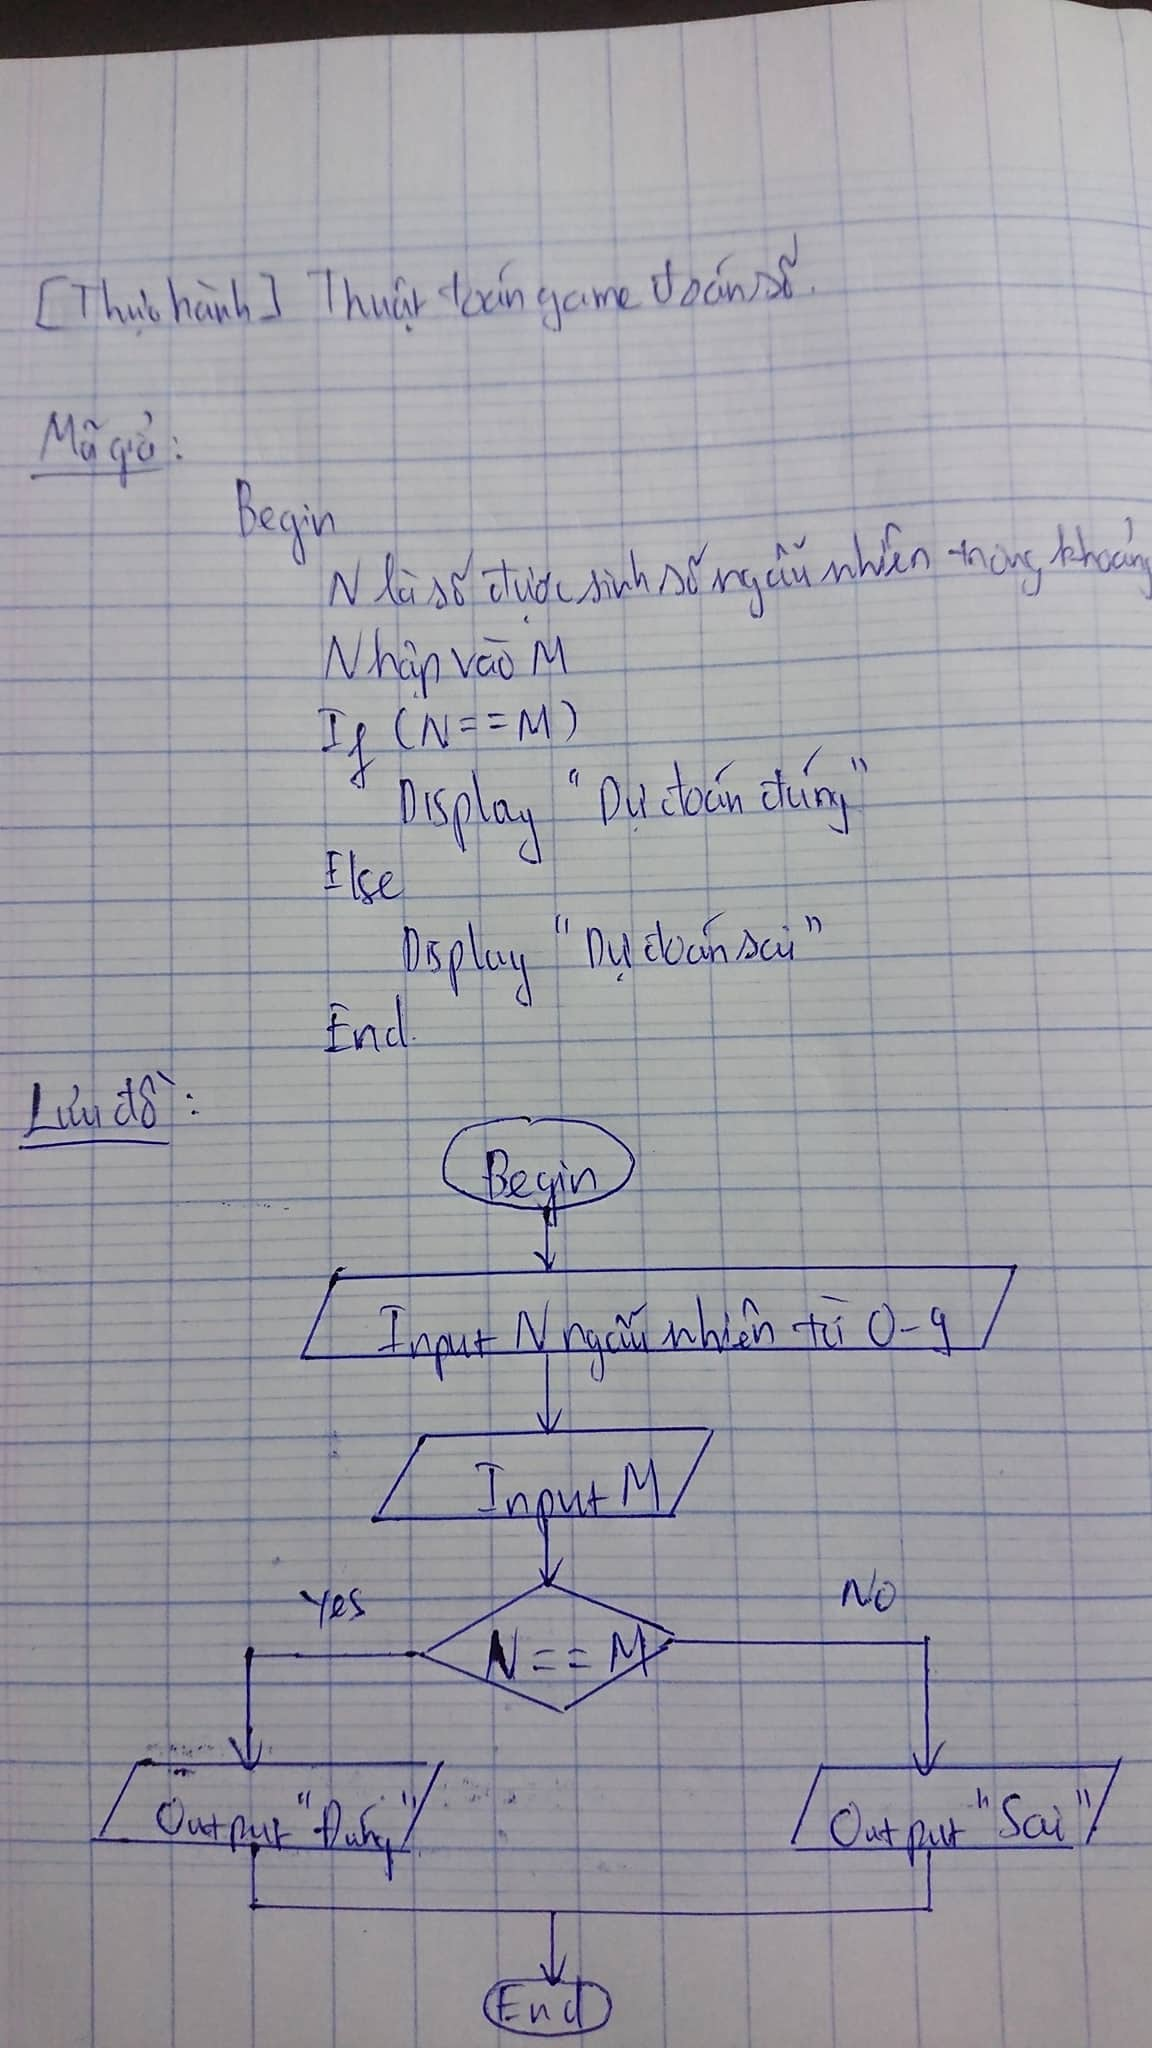 [Thực hành] Thuật toán game đoán số.
Mã giả:
Begin
N là số được sinh số ngẫu nhiên trong khoảng
Nhập vào M
If (N==M)
Display "Dự đoán đúng"
Else
Display "Dự đoán sai"
End.
Lưu đồ:
Begin
Input N ngẫu nhiên từ 0-9
Input M
Yes
No
N==M
Output "Đúng"
Output "Sai"
End